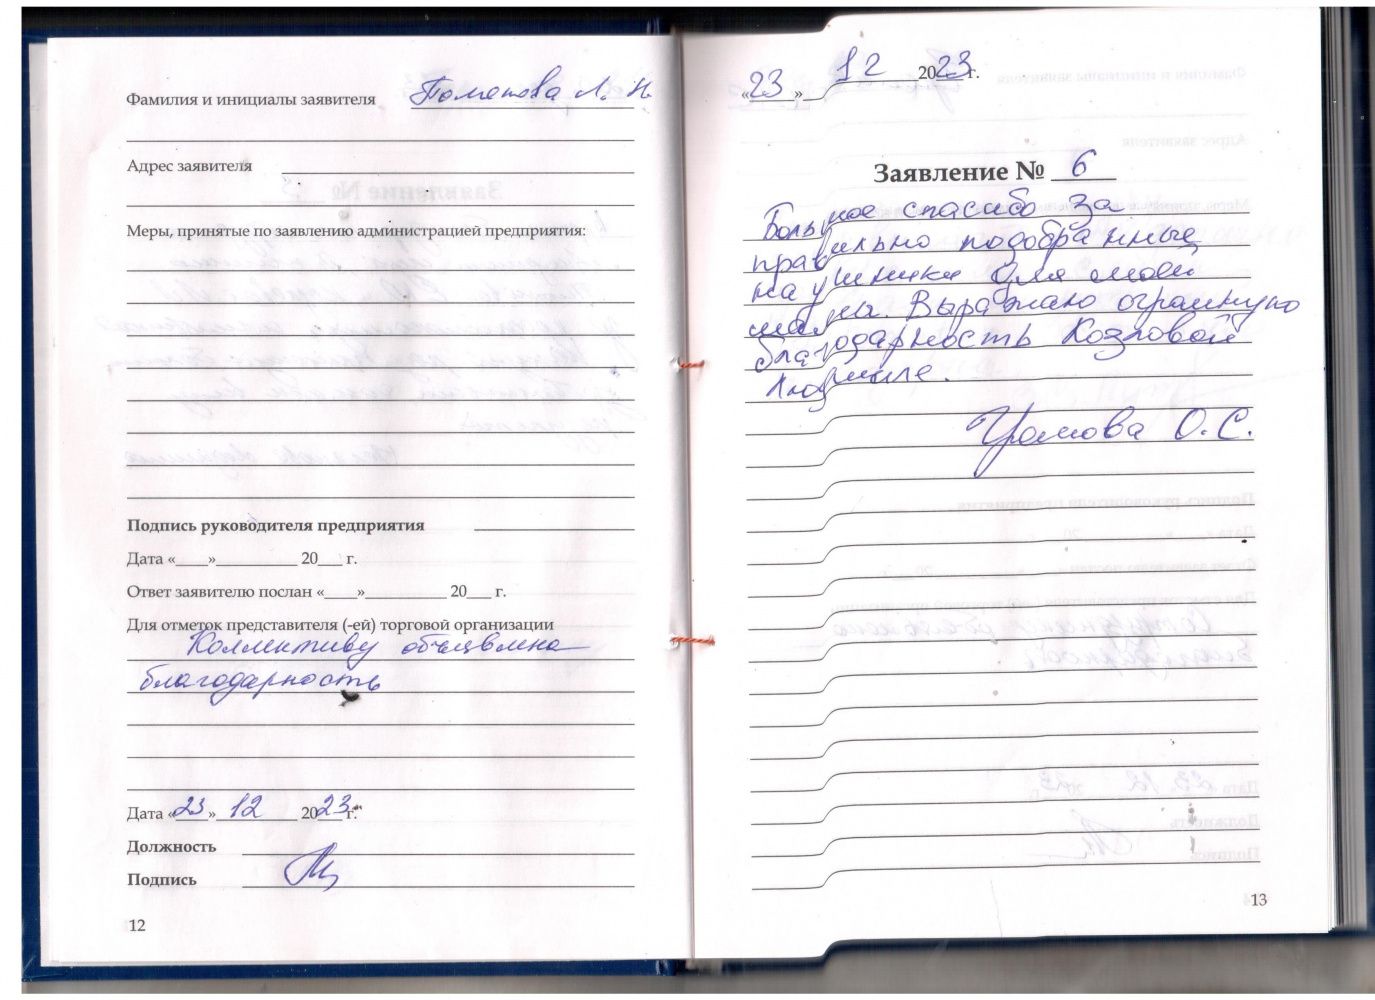 Фамилия и инициалы заявителя Л. Н.
Адрес заявителя
Меры, принятые по заявлению администрацией предприятия:
Подпись руководителя предприятия
Дата «____»__________ 20___ г.
Ответ заявителю послан «____»__________ 20___ г.
Для отметок представителя (-ей) торговой организации
Коллективу объявлена
благодарность
Дата «23» 12 2023 г.
Должность
Подпись
12
«23» 12 2023 г.
Заявление № 6
Большое спасибо за
правильно подобранные
наушники для моей
мамы. Выражаю огромную
благодарность Козловой
Людмиле.
О. С.
13